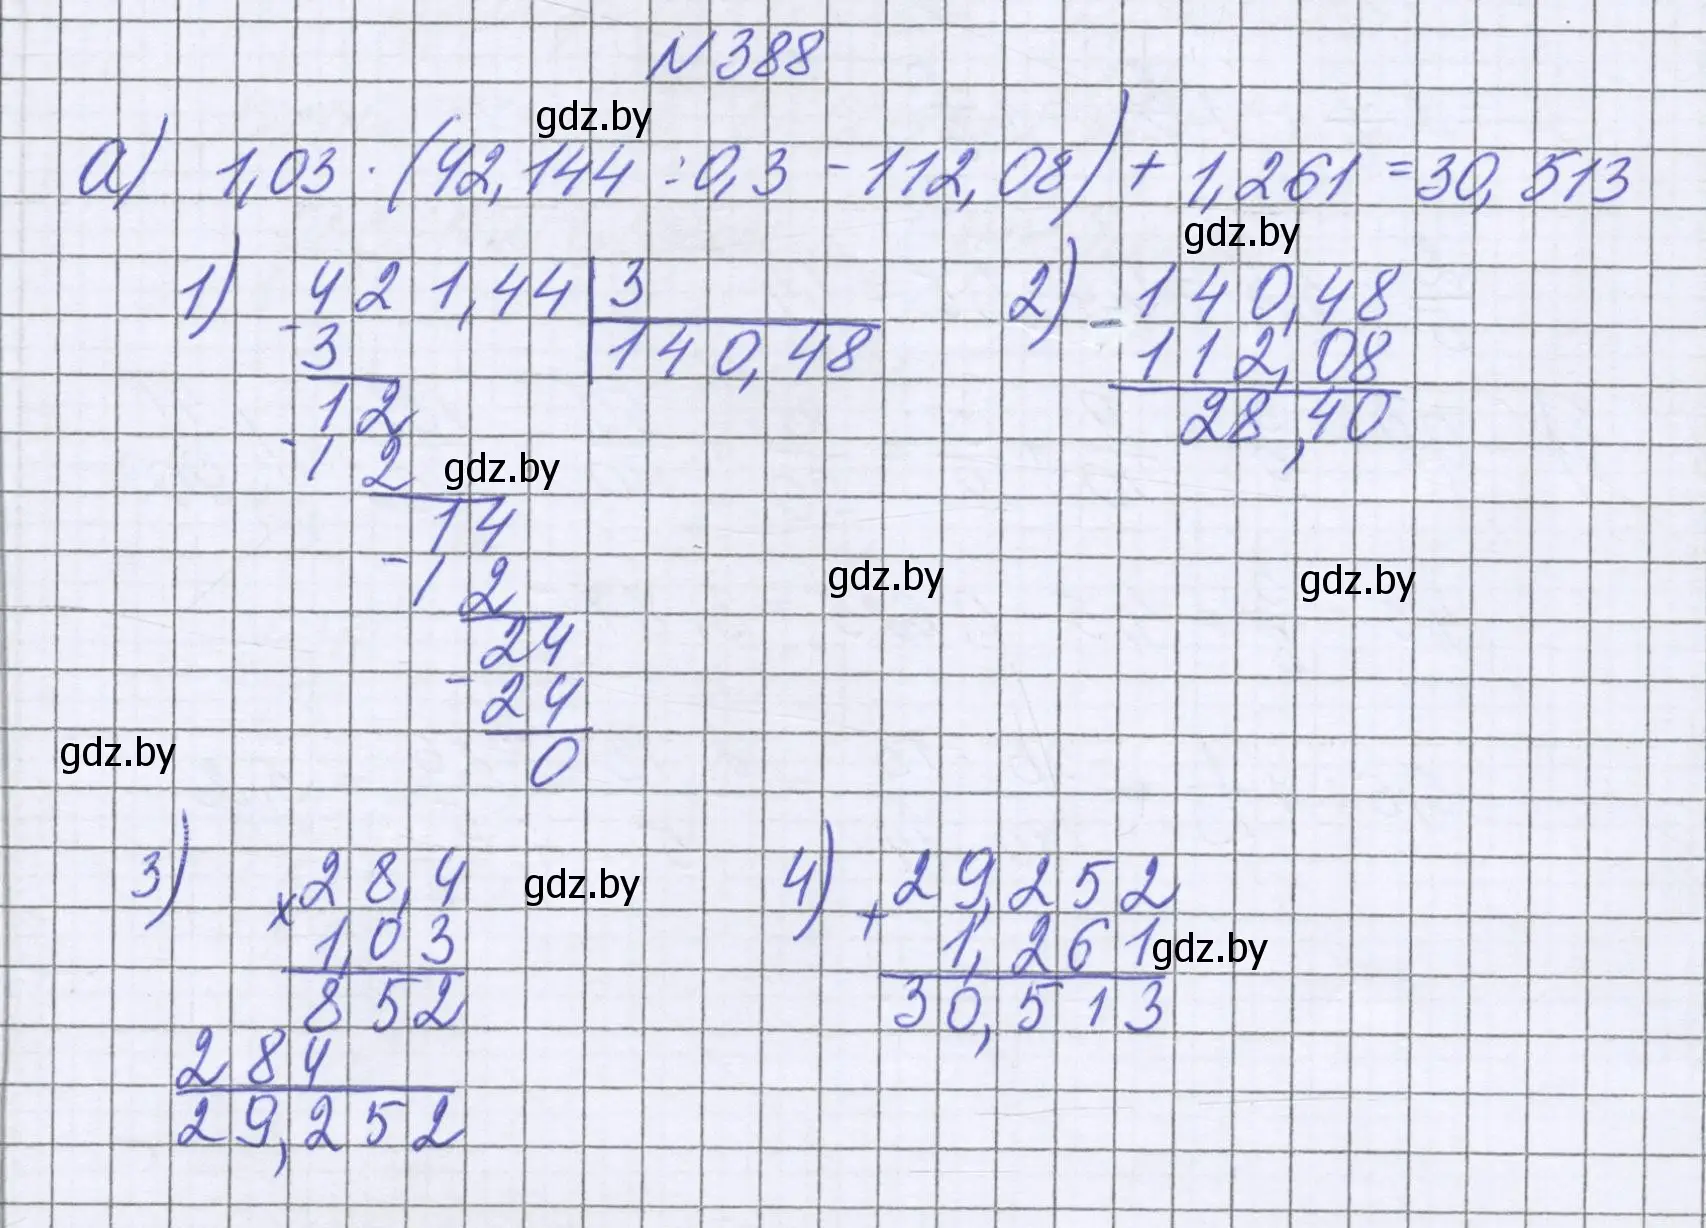 N 388
gdz.by
а) 1,03 · (42,144 : 0,3 - 112,08) + 1,261 = 30,513
gdz.by
1) - 421,44 | 3
3 | 140,48
12
- 12
gdz.by
14
- 12
24
- 24
0
2) - 140,48
112,08
28,40
gdz.by
gdz.by
gdz.by
3) x 28,4
1,03
852
284
29,252
gdz.by
4) + 29,252
1,261
gdz.by
30,513